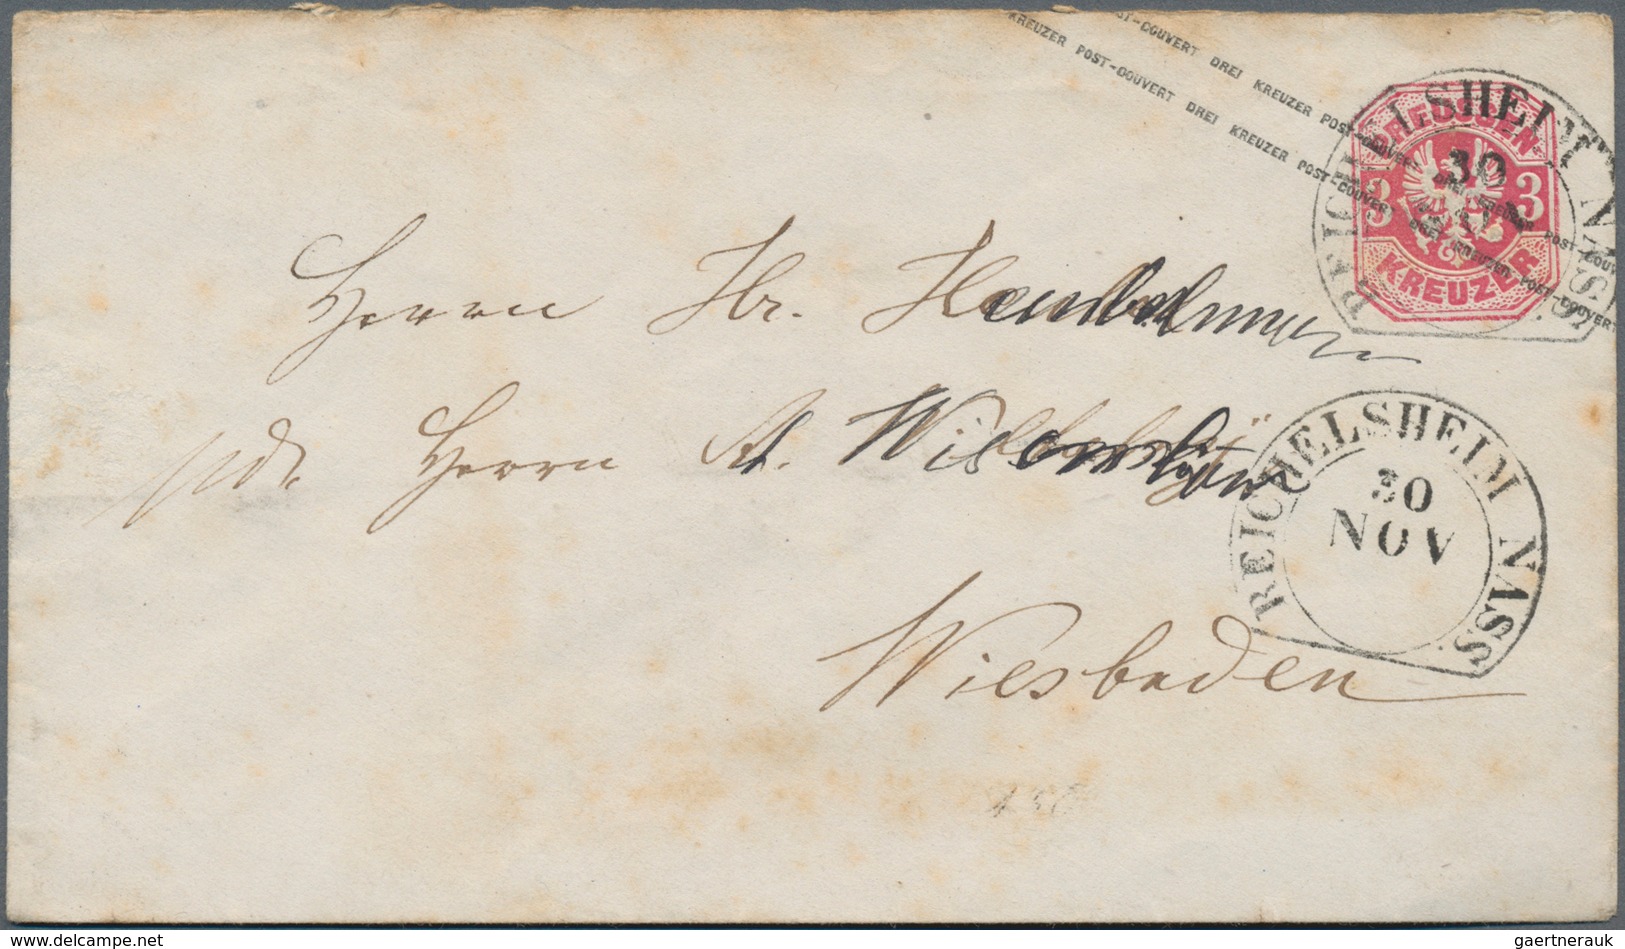 KREUZER POST-COUVERT DREI KREUZER POST-COUVERT DREI KREUZER POST-COUVERT
ST-COUVERT DREI KREUZER POST-COUVERT DREI KREUZER POST-COUV
PREUSSEN
3 3
KREUZER
REICHELSHEIM NASS.
30
NOV
Herrn Hr.
Herrn A.
REICHELSHEIM NASS.
30
NOV
Wiesbaden
delcampe.net
gaertnerauk